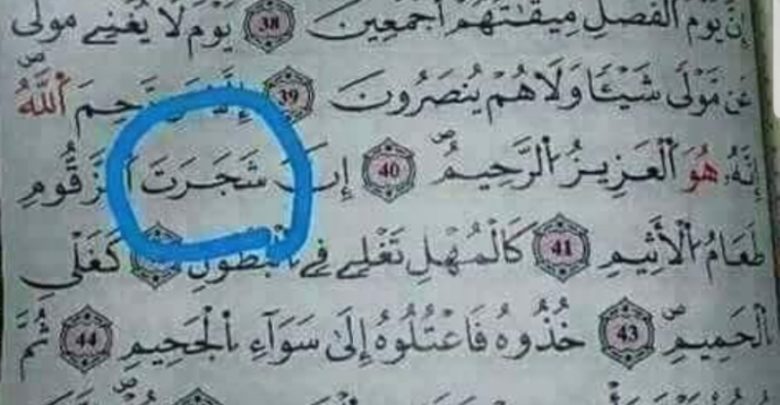 إِنَّ يَوْمَ اَ۬لْفَصْلِ مِيقَٰتُهُمْ أَجْمَعِينَ 38 يَوْمَ لَا يُغْنِے مَوْلًى
عَن مَّوْلًى شَيْـًٔا وَلَا هُمْ يُنصَرُونَ 39 إِلَّا مَن رَّحِمَ اَ۬للَّهُ
إِنَّهُۥ هُوَ اَ۬لْعَزِيزُ اُ۬لرَّحِيمُ 40 إِنَّ شَجَرَتَ اَ۬لزَّقُّومِ
طَعَامُ اُ۬لْأَثِيمِ 41 كَالْمُهْلِ تَغْلِے فِے اِ۬لْبُطُونِ كَغَلْيِ
اِ۬لْحَمِيمِ 43 خُذُوهُ فَاعْتُلُوهُ إِلَىٰ سَوَآءِ اِ۬لْجَحِيمِ 44 ثُمَّ